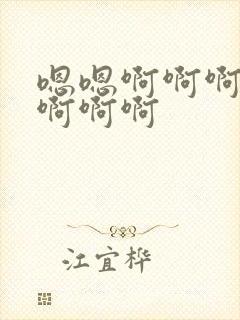 嗯嗯啊啊啊
啊啊啊
江宜桦